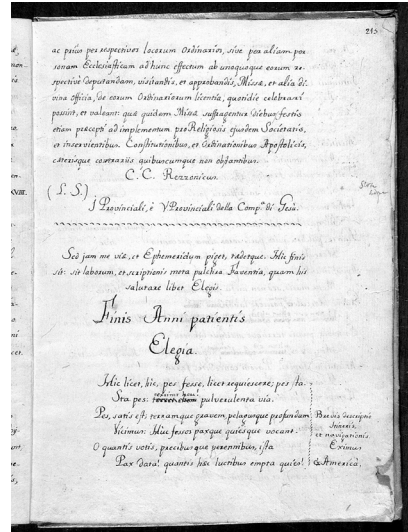 213
ac prius per respectivos locorum Ordinarios, sive per aliam per
sonam Ecclesiasticam ad hunc effectum ab unoquoque eorum re
spective deputandam, visitandis, et approbandis, Missæ, et alia di
vina officia, de eorum Ordinariorum licentia, quotidie celebrari
possint, et valeant: quæ quidem Missæ suffragentur diebus festis
etiam præcepti ad implementum pro Religiosis ejusdem Societatis,
et inservientibus. Constitutionibus, et Ordinationibus Apostolicis,
cæterisque contrariis quibuscumque non obstantibus.
C. C. Rezzonicus.
(L. S.)
Provinciali, è V Provinciali della Comp.a di Gesù.
Sed jam me viæ, et Ephemeridum piget, tædetque. Hic finis
sit: sit laborum, et scriptionis meta pulchra Faventia, quam his
salutare libet Elegis.
Finis Anni patientis
Elegia.
Hic licet, hic, pes, fesse, licet requiescere; pes sta.
Sta pes: pulverulenta via.
Pes, satis est; terramque gravem, pelagusque profundum
Vicimus: Huc fessos paxque quiesque vocant.
O quantis votis, precibusque perennibus, ista
Pax data! quantis hæc luctibus empta quies!
Brevis descriptio
itineris,
et navigationis
Eximus
America.
XVIII.